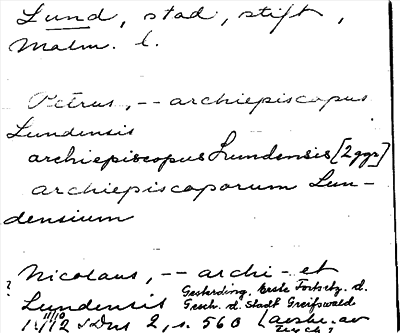 Lund, stad, stift,
Malm. l.
Petrus, -- archiepiscopus
Lundensis
archiepiscopus Lundensis [2 ggr]
archiepiscoporum Lun-
densium
? Nicolaus, -- archi- et
Lundensis Gesterding, Erste Fortsetz. d.
Gesch. d. Stadt Greifswald
11/10
1412 SDns 2, s. 560 [avskr. av
tryck?]